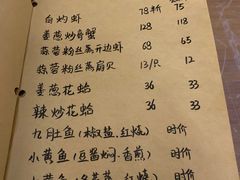 白灼虾 78/斤 75
姜葱炒膏蟹 128 118
蒜蓉粉丝蒸开边虾 68 65
蒜蓉粉丝蒸扇贝 13/只 12
姜葱花蛤 36 33
辣炒花蛤 36 33
九肚鱼(椒盐,红烧) 时价
小黄鱼(豆酱焖·香煎) 时价